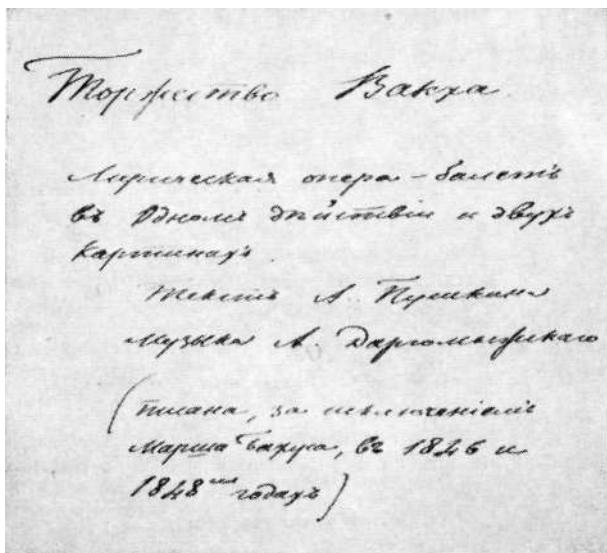 Торжество Вакха
Лирическая опера-балетъ
въ одномъ дѣйствіи и двухъ
картинахъ.
Текстъ А. Пушкина
Музыка А. Даргомыжскаго
(писана, за исключеніемъ
Марша Бахуса, въ 1846 и
1848мъ годахъ)